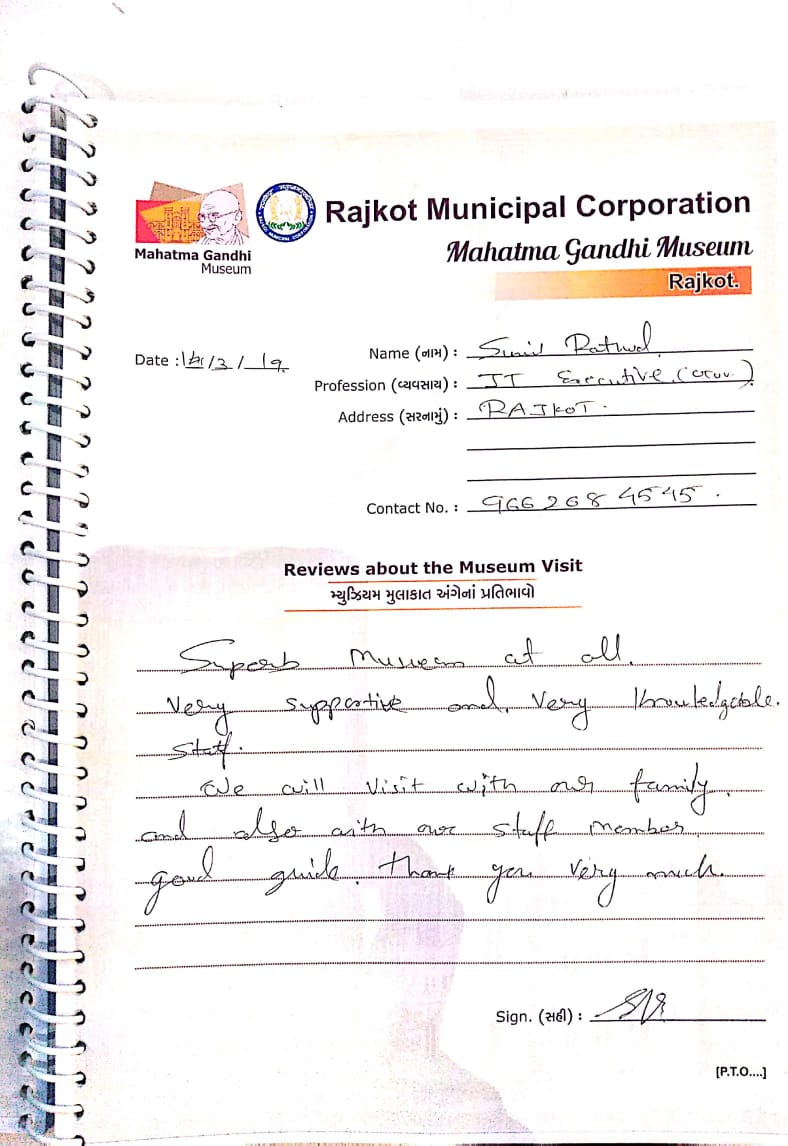 Rajkot Municipal Corporation
Mahatma Gandhi Museum
Rajkot.
Mahatma Gandhi
Museum
Date : /3/19
Name (નામ) : Sunil Rathod
Profession (વ્યવસાય) : IT Executive (Govv.)
Address (સરનામું) : RAJKOT.
Contact No. : 966 268 4545.
Reviews about the Museum Visit
મ્યુઝિયમ મુલાકાત અંગેનાં પ્રતિભાવો
Superb Museum at all.
Very supportive and, very knowledgable.
Staff.
We will visit with our family.
and also with our staff member
good guide. thank you very much.
Sign. (સહી) :
[P.T.O....]